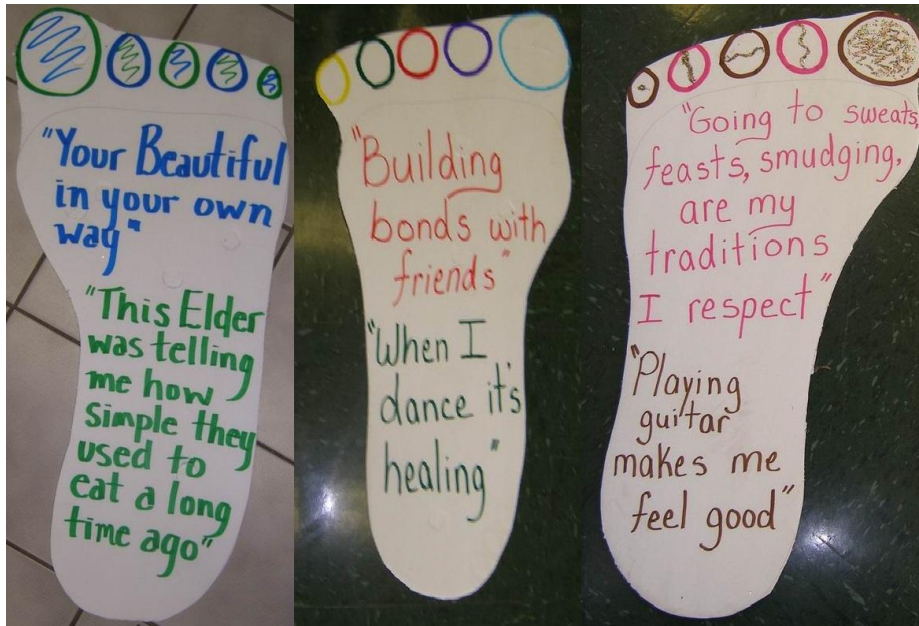 "Your Beautiful
in your own
way"
"This Elder
was telling
me how
simple they
used to
eat a long
time ago"
"Building
bonds with
friends"
"When I
dance it's
healing"
"Going to sweats,
feasts, smudging,
are my
traditions
I respect"
"Playing
guitar
makes me
feel good"